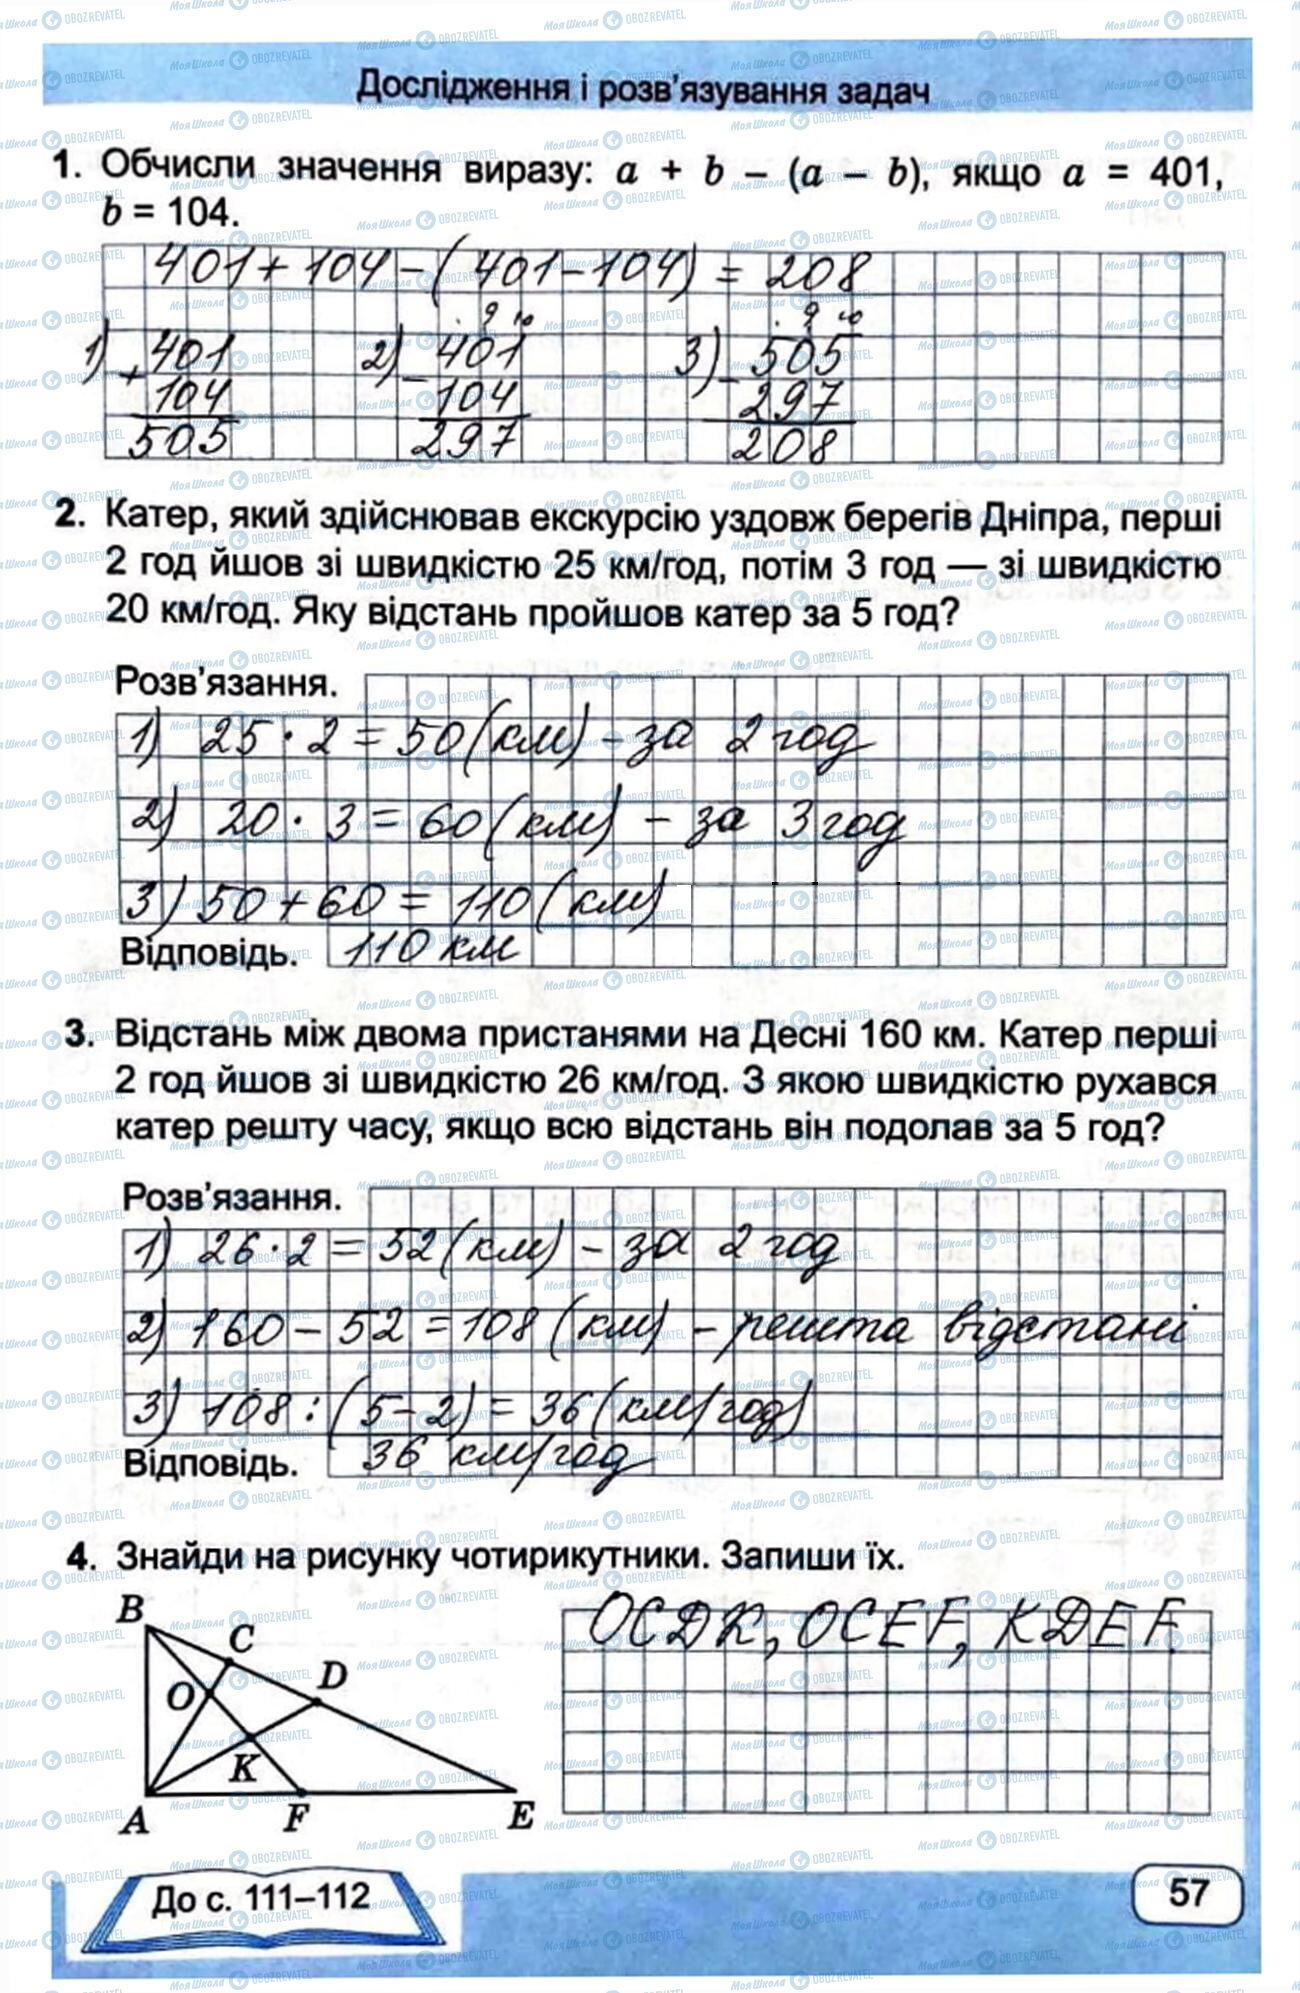 Дослідження і розв'язування задач
1. Обчисли значення виразу: a + b – (a – b), якщо a = 401,
b = 104.
401 + 104 – (401 – 104) = 208
. 9 10 . 9 10
1) + 401 2) – 401 3) – 505
104 104 297
505 297 208
2. Катер, який здійснював екскурсію уздовж берегів Дніпра, перші
2 год йшов зі швидкістю 25 км/год, потім 3 год — зі швидкістю
20 км/год. Яку відстань пройшов катер за 5 год?
Розв'язання.
1) 25 · 2 = 50 (км) – за 2 год
2) 20 · 3 = 60 (км) – за 3 год
3) 50 + 60 = 110 (км)
Відповідь. 110 км
3. Відстань між двома пристанями на Десні 160 км. Катер перші
2 год йшов зі швидкістю 26 км/год. З якою швидкістю рухався
катер решту часу, якщо всю відстань він подолав за 5 год?
Розв'язання.
1) 26 · 2 = 52 (км) – за 2 год
2) 160 – 52 = 108 (км) – решта відстані
3) 108 : (5 – 2) = 36 (км/год)
Відповідь. 36 км/год
4. Знайди на рисунку чотирикутники. Запиши їх.
OCDK, OCEF, KDEF.
B
C
D
O
K
A F E
До с. 111–112
57
МояШкола OBOZREVATEL